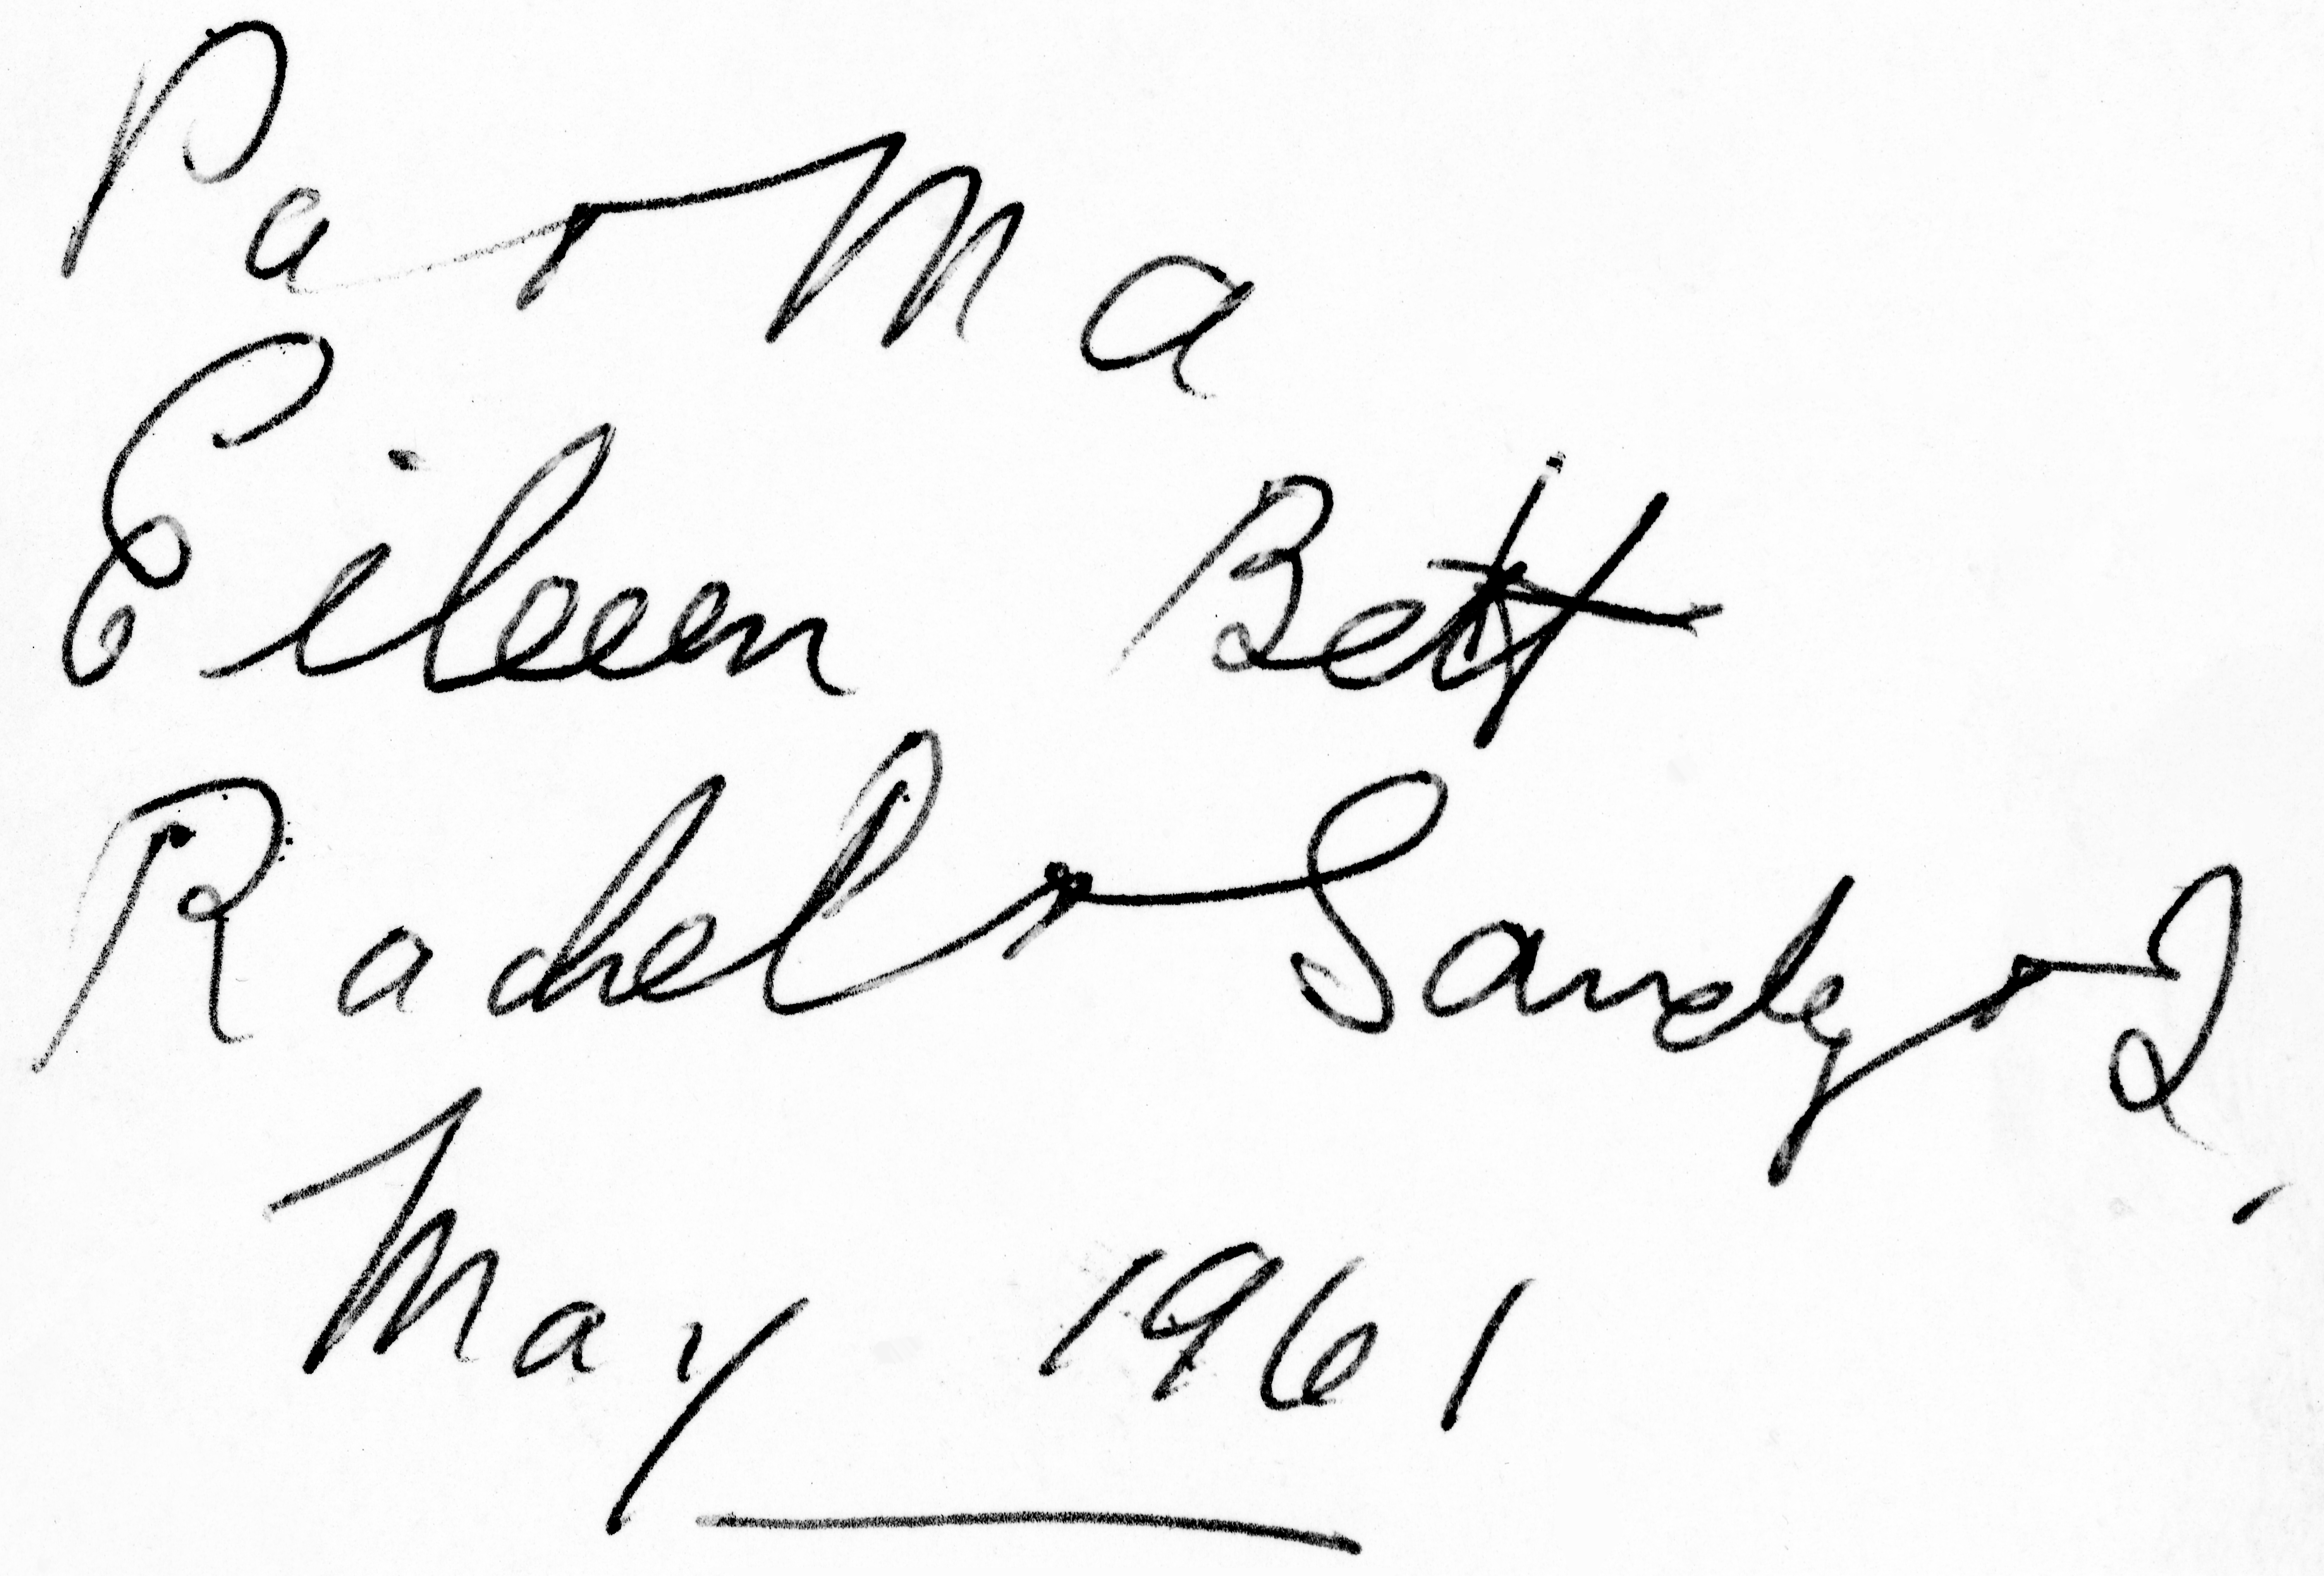 Pa + Ma
Eileen Bett
Rachel + Sandy + I,
May 1961